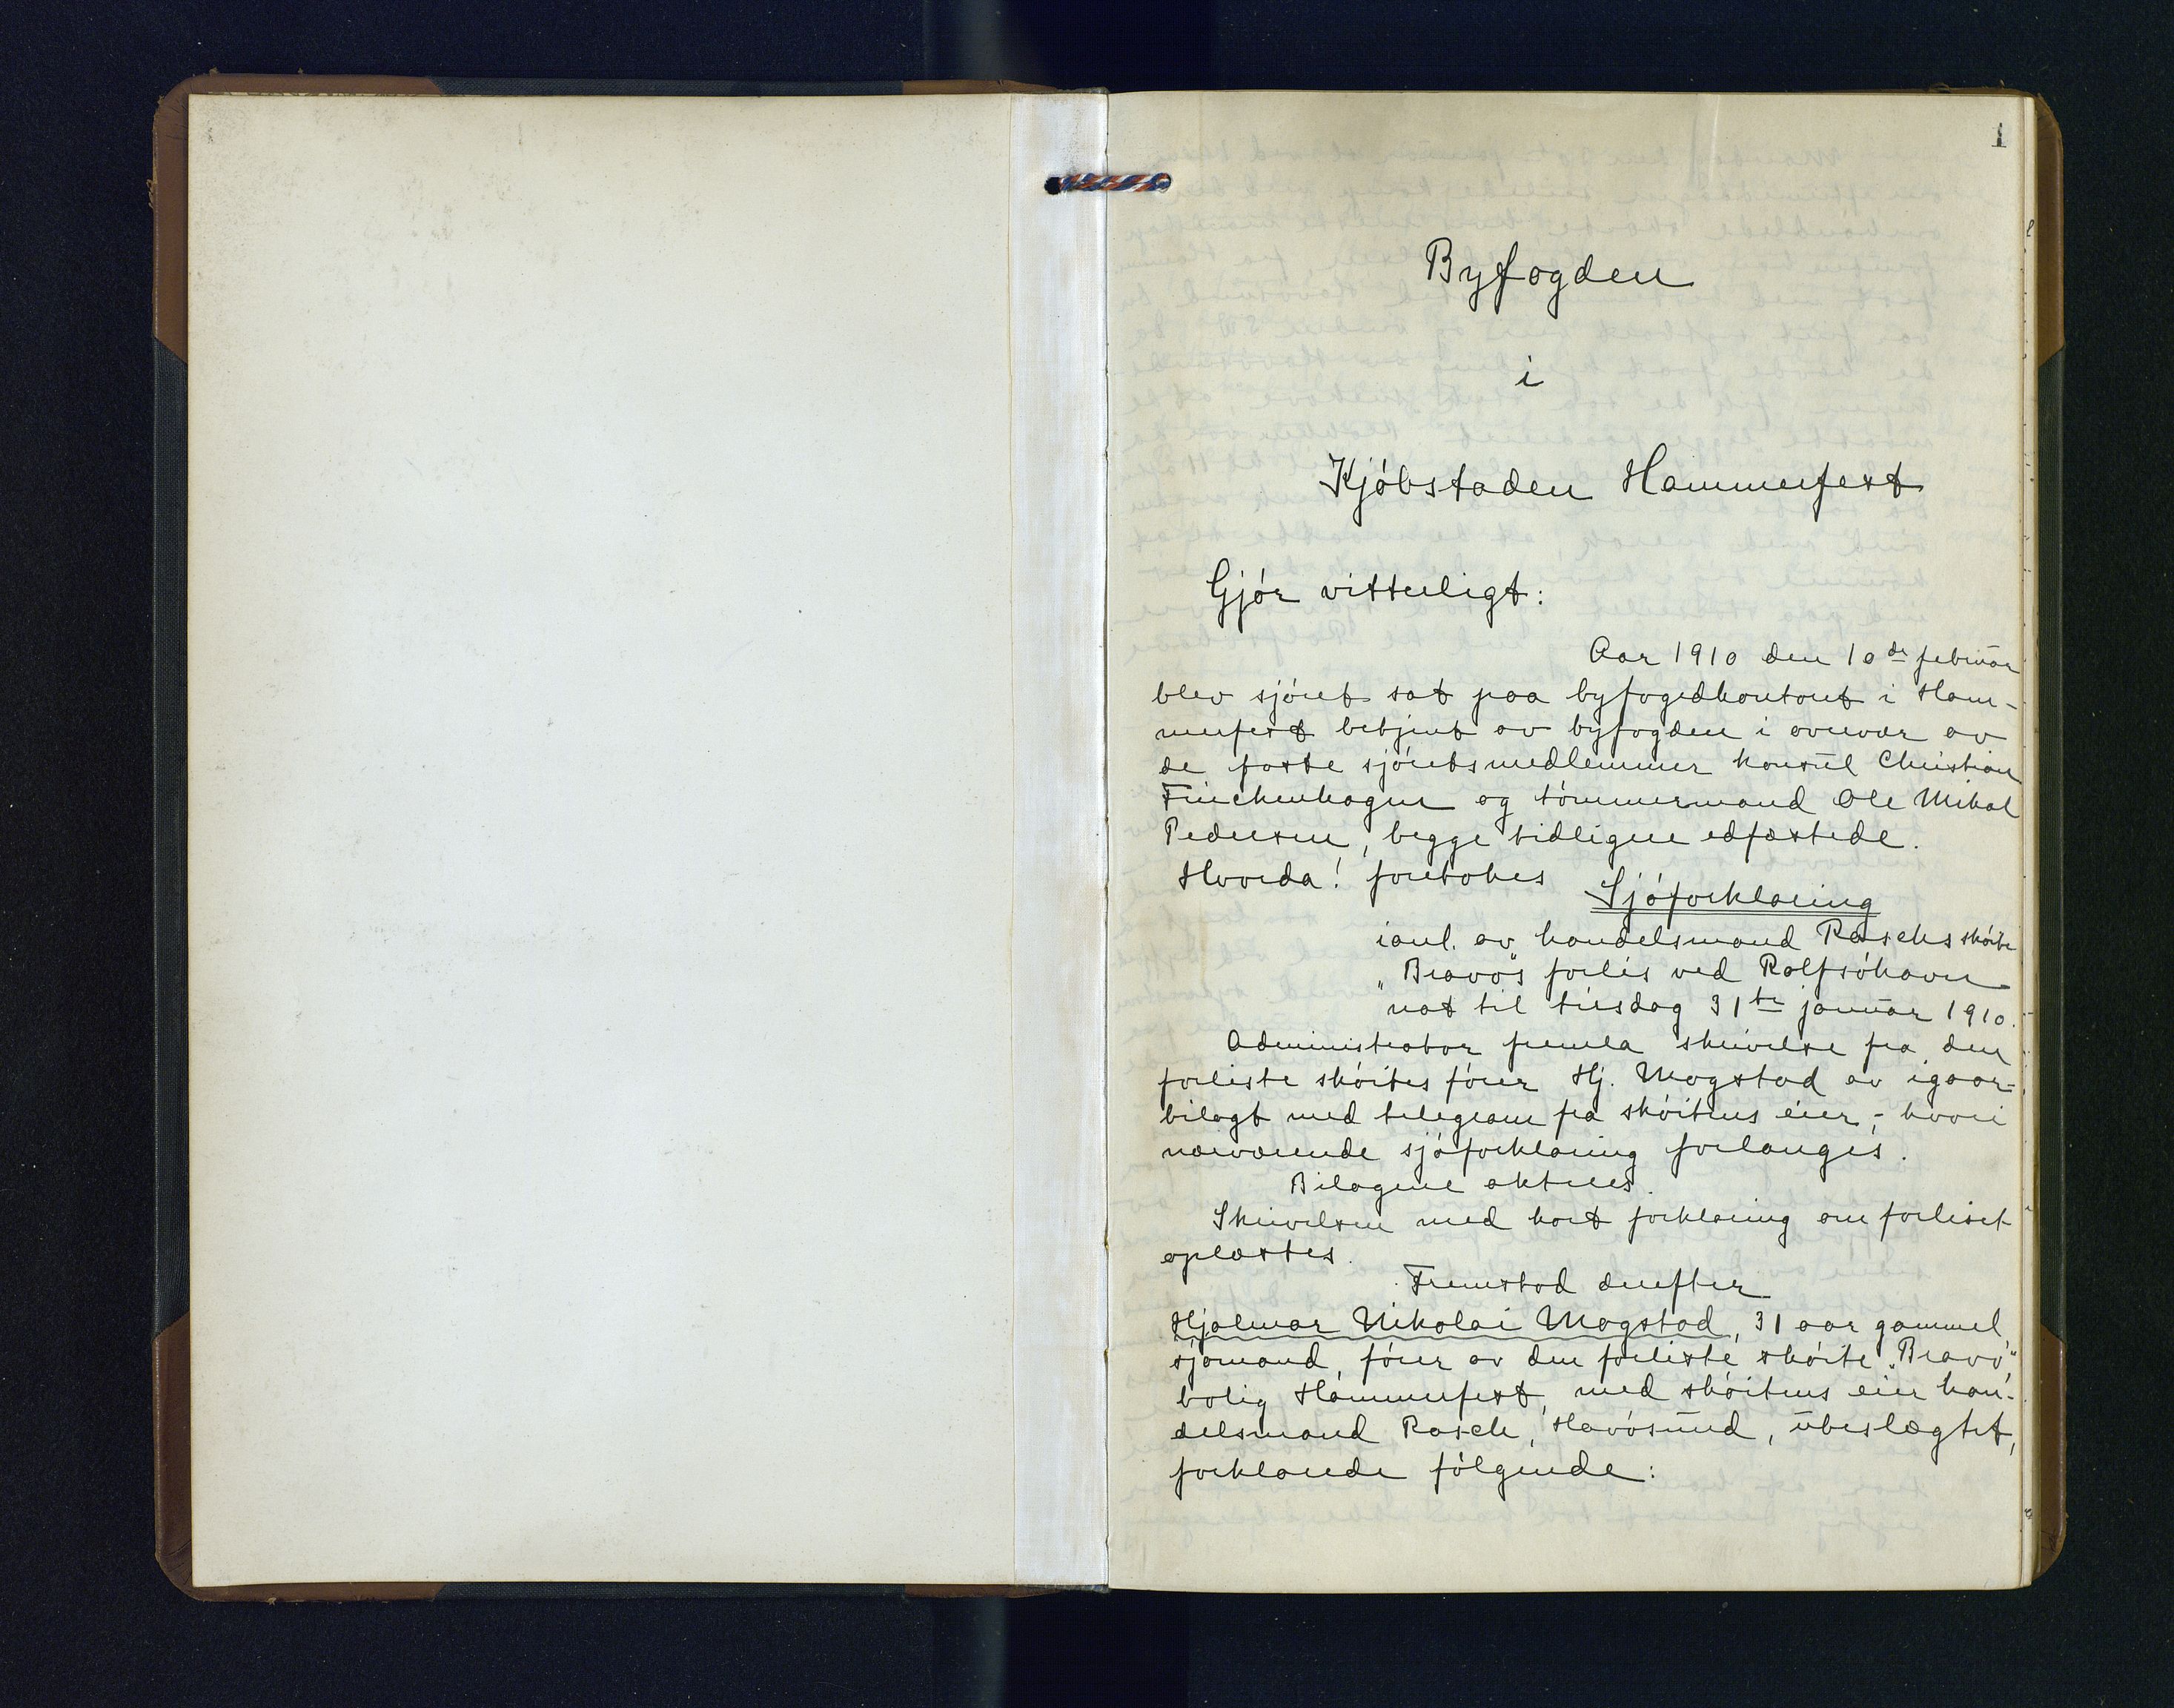 1
Byfogden
i
Kjøbstaden Hammerfest
Gjør vitterligt:
Aar 1910 den 10de februar
blev sjøret sat paa byfogedkontoret i Ham-
merfest betjent av byfogden i overvær av
de faste sjøretsmedlemmer konsul Christian
Finckenhagen og tømmermand Ole Mikal
Pedersen, begge tidligere edfæstede.
Hvorda! foretokes
Sjøforklaring
ianl. av handelsmand Raschs skøite
"Bravo"s forlis ved Rolfsøhavn
nat til tirsdag 31te januar 1910.
Administrator fremla skrivelse fra den
forliste skøites fører Hj. Mogstad av igaar-
bilagt med telegram fra skøitens eier,- hvori
nærværende sjøforklaring forlanges.
Bilagene aktees.
Skrivelsen med kort forklaring om forliset
oplæstes.
Fremstod derefter
Hjalmar Nikolai Mogstad, 31 aar gammel,
sjømand, fører av den forliste skøite "Bravo"
bolig Hammerfest, med skøitens eier han-
delsmand Rasch, Havøsund, ubeslægtet,
forklarede følgende: